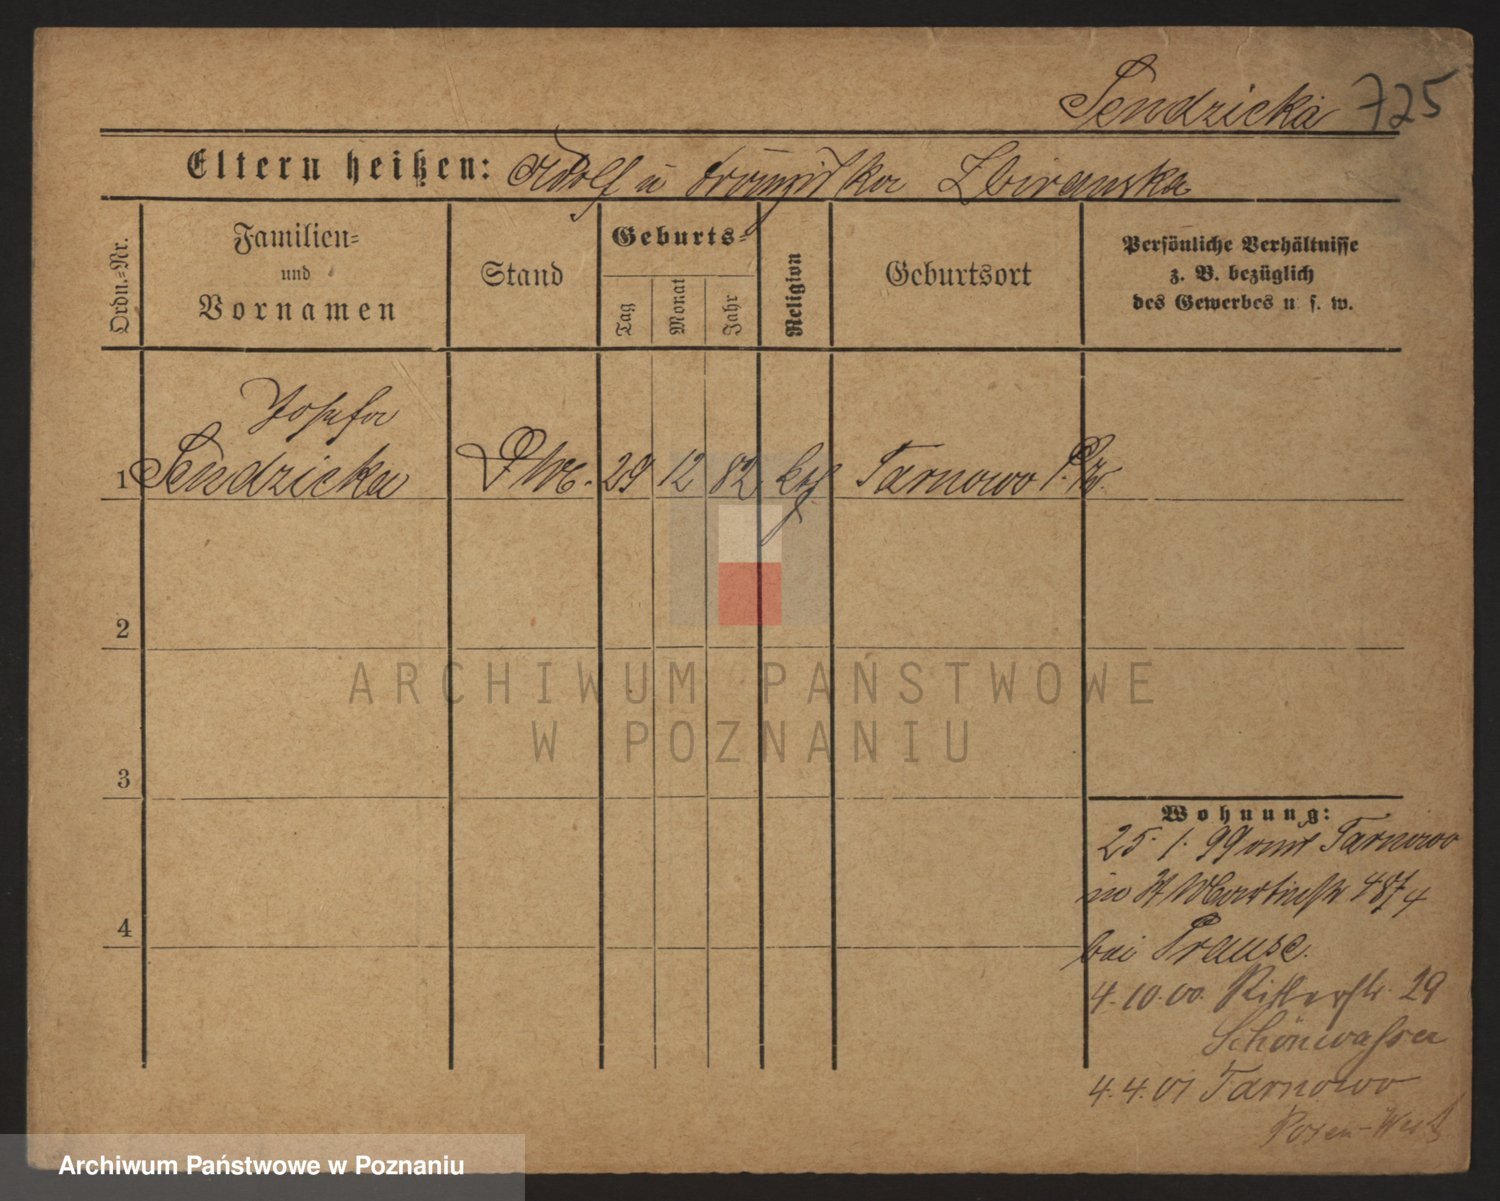 Sendzicka 725
Eltern heißen: Adolf u Franziska Zbiranska
Ordn.-Nr.
Familien-
und
Vornamen
Stand
Geburts-
Tag
Monat
Jahr
Religion
Geburtsort
Persönliche Verhältnisse
z. B. bezüglich
des Gewerbes u. s. w.
Josefa
1 Sendzicka 29 12 82 kth Tarnowo
2
3
4
Wohnung:
25. 1. 99 von Tarnowo
in St Martinstr
bei Krause.
4.10.00. Ritterstr. 29
Schönwasser
4.4.01 Tarnowo
Posen-West
ARCHIWUM PAŃSTWOWE
W POZNANIU
Archiwum Państwowe w Poznaniu